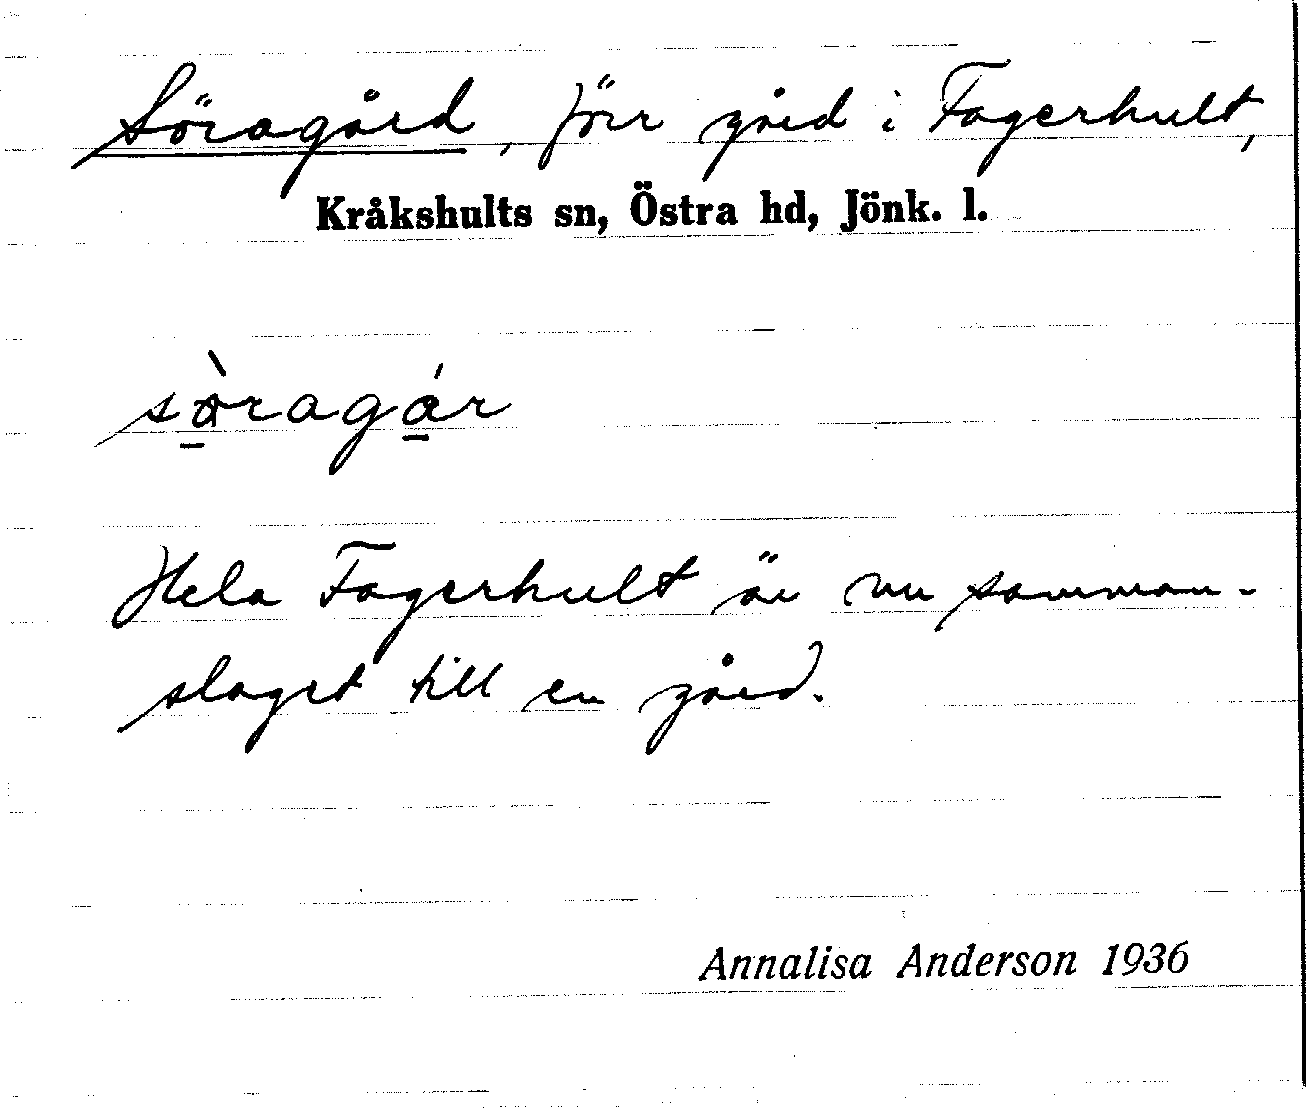 Söragård, förr gård i Fagerhult,
Kråkshults sn, Östra hd, Jönk. l.
sö̀ragár
Hela Fagerhult är nu samman-
slaget till en gård.
Annalisa Anderson 1936